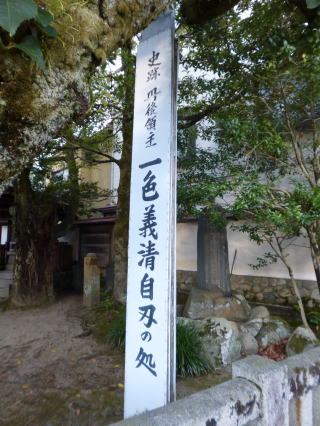 史跡 丹後領主 一色義清自刃の処